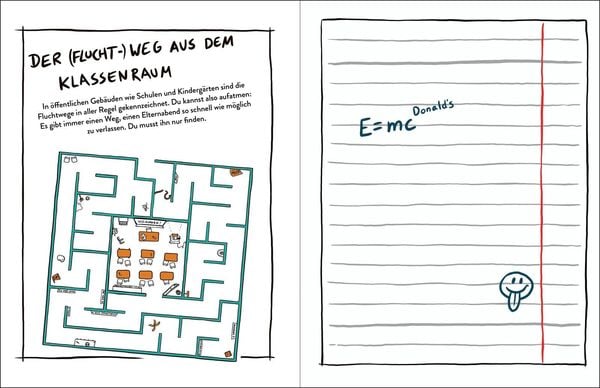 DER (FLUCHT-)WEG AUS DEM
KLASSENRAUM
In öffentlichen Gebäuden wie Schulen und Kindergärten sind die
Fluchtwege in aller Regel gekennzeichnet. Du kannst also aufatmen:
Es gibt immer einen Weg, einen Elternabend so schnell wie möglich
zu verlassen. Du musst ihn nur finden.
E=mcDonald's